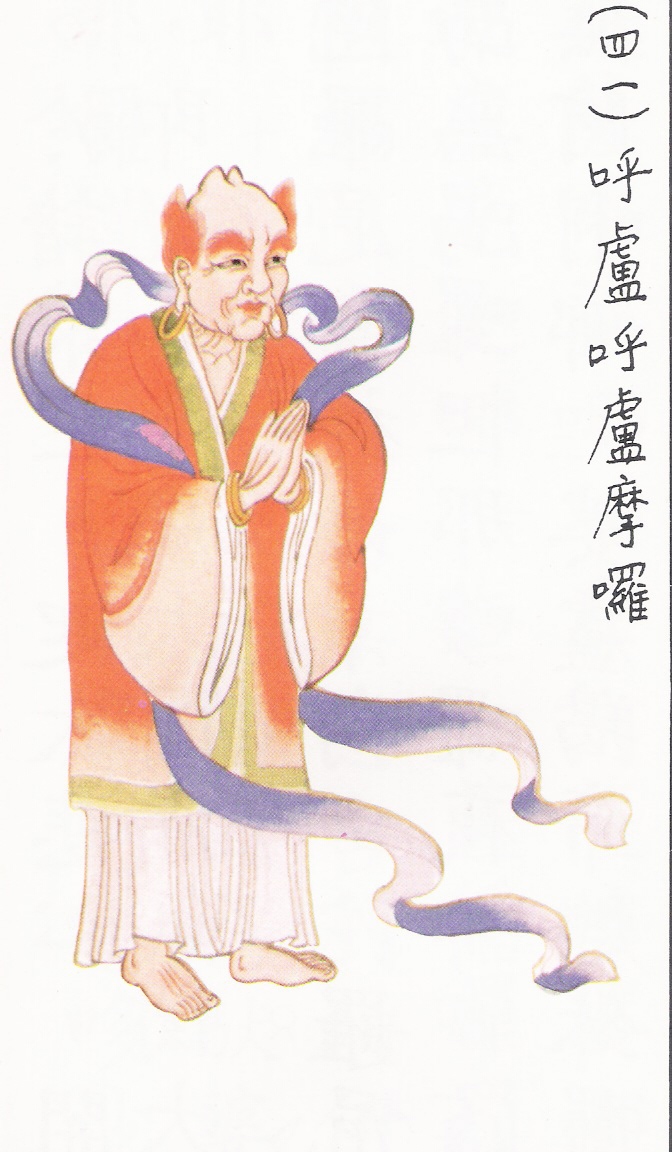 （四一）呼盧呼盧摩囉